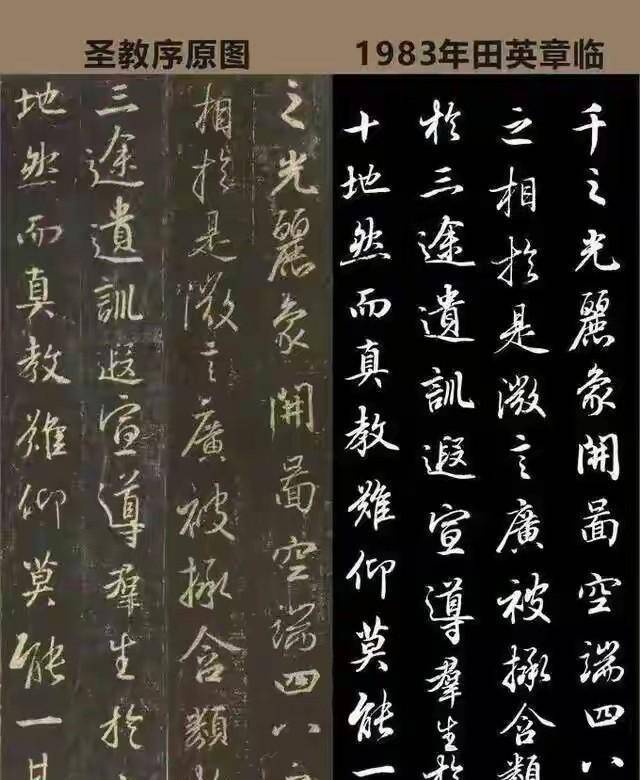 圣教序原图
1983年田英章临
之光麗象開啚空端四八
相於是微言廣被拯含類
三途遺訓遐宣導羣生於
地然而真教難仰莫能一其
千之光麗象開啚空端四八
之相於是微言廣被拯含類
於三途遺訓遐宣導羣生於
十地然而真教難仰莫能一